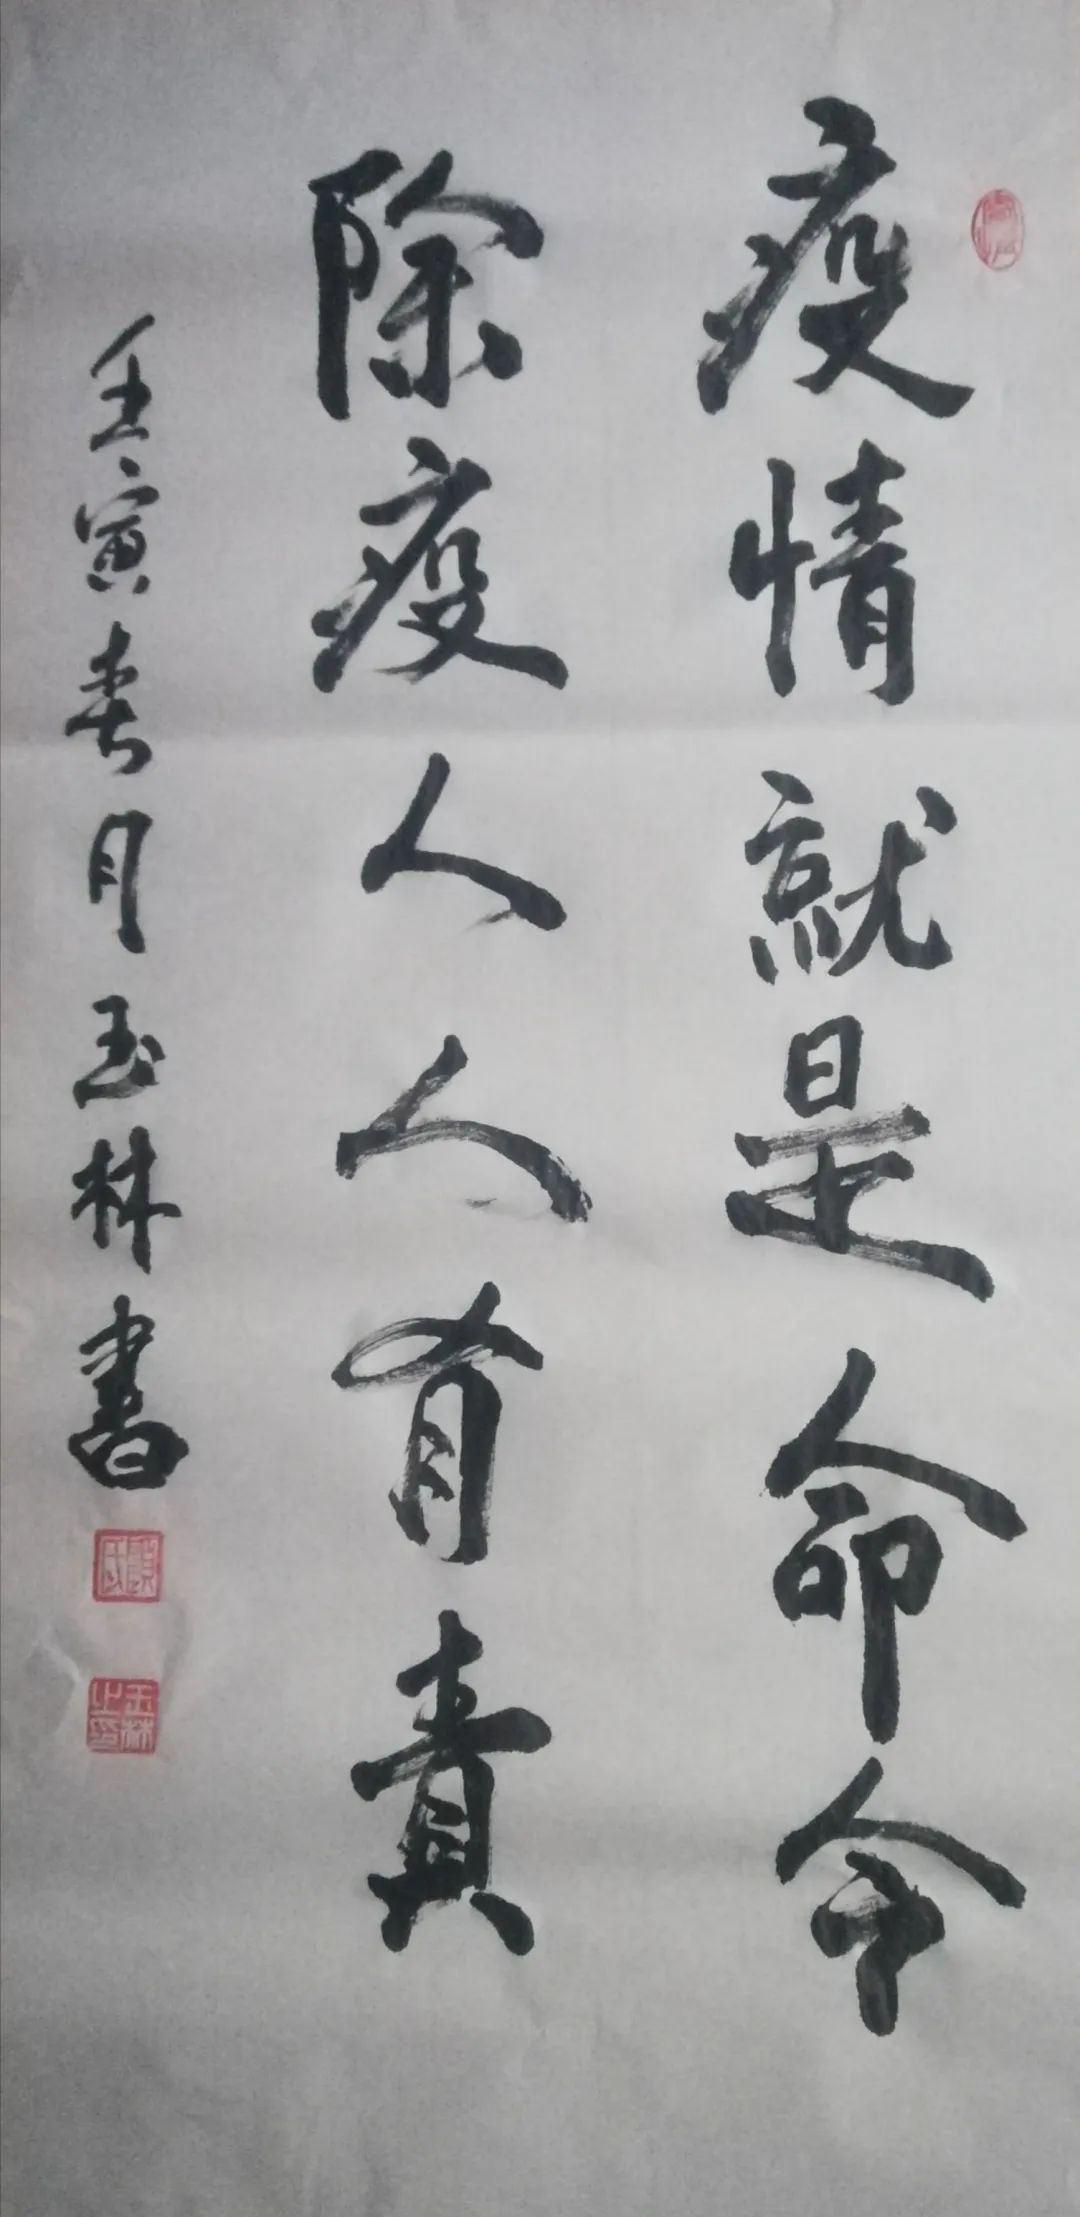 疫情就是命令
除疫人人有責
壬寅春月玉林書
玉林之印